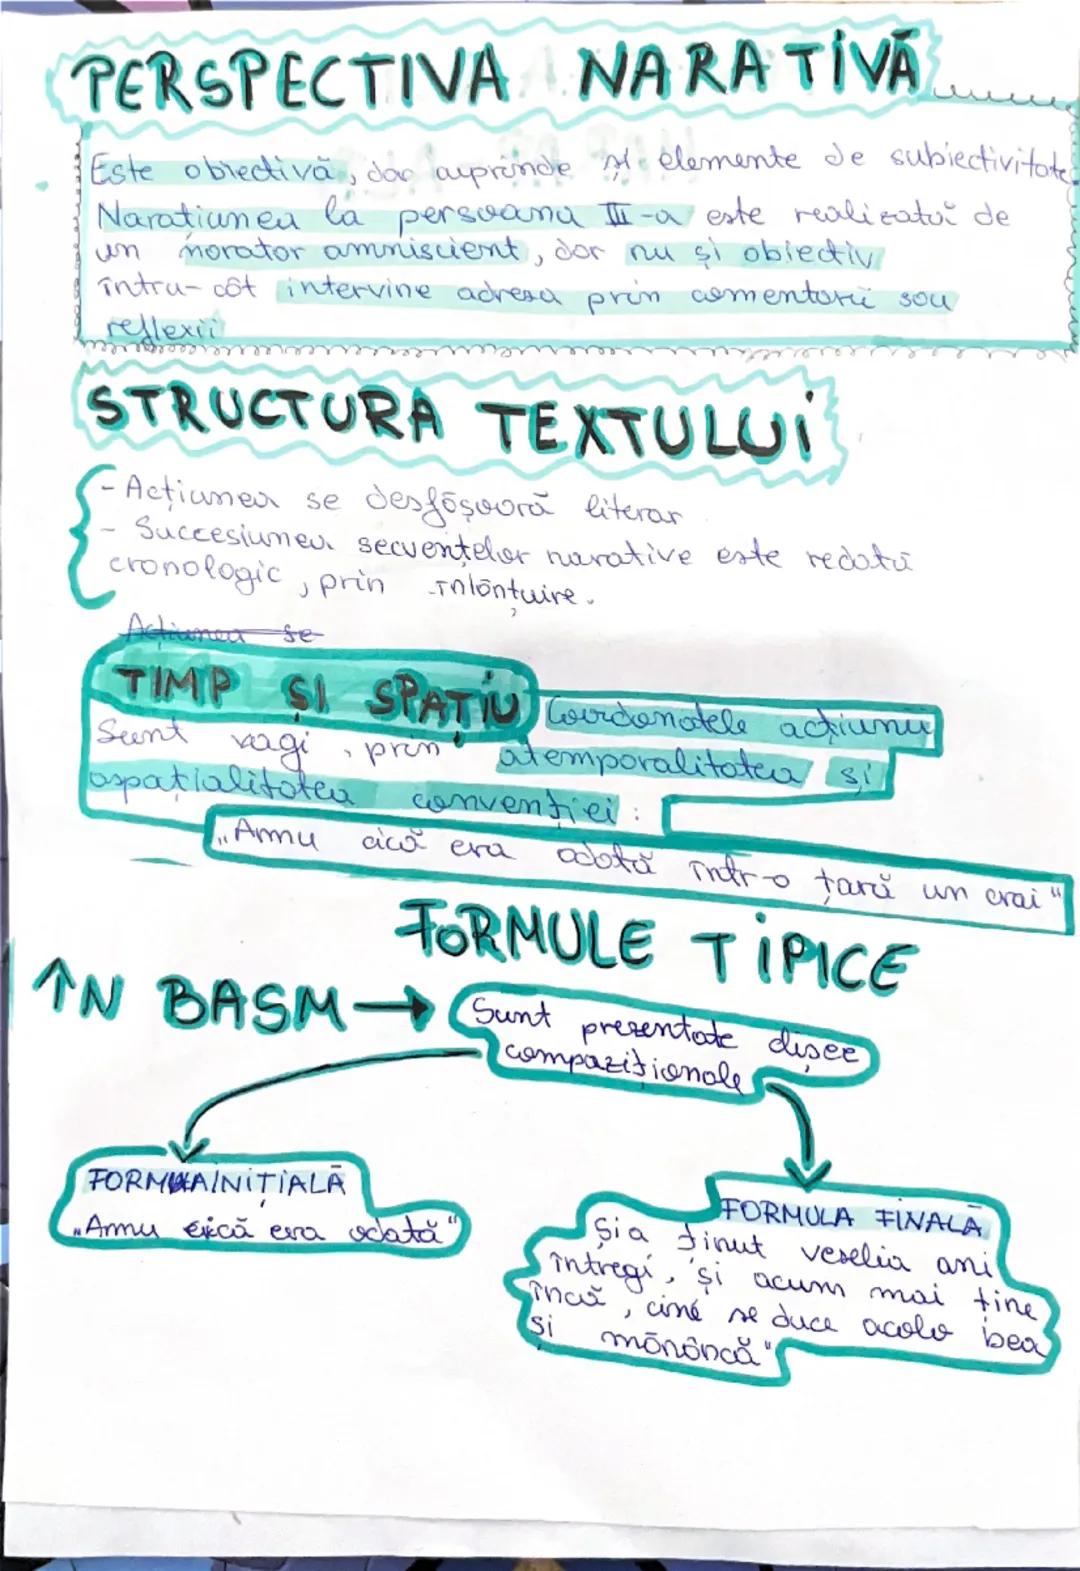 PERSPECTIVA NARATIVĂ
Este obiectivă, dar cuprinde și elemente de subiectivitate.
Narațiunea la persoana III-a este realizată de
un narator omniscient, dar nu și obiectiv
întru-cât intervine adresa prin comentarii sau
reflexii
STRUCTURA TEXTULUI
- Acțiunea se desfășoară literar
- Succesiunea secvențelor narative este redată
cronologic, prin înlănțuire.
Acțiunea se
TIMP ȘI SPAȚIU Coordonatele acțiunii
Sunt vagi, prin atemporalitatea și
aspațialitatea convenției:
„Amu cică era odată într-o țară un crai"
FORMULE TIPICE
ÎN BASM →
Sunt prezentate
compoziționale
FORMULA INIȚIALĂ
„Amu cică era odată"
FORMULA FINALĂ
Și a ținut veselia ani
întregi, și acum mai ține
încă, cine se duce acolo bea
și mănâncă"